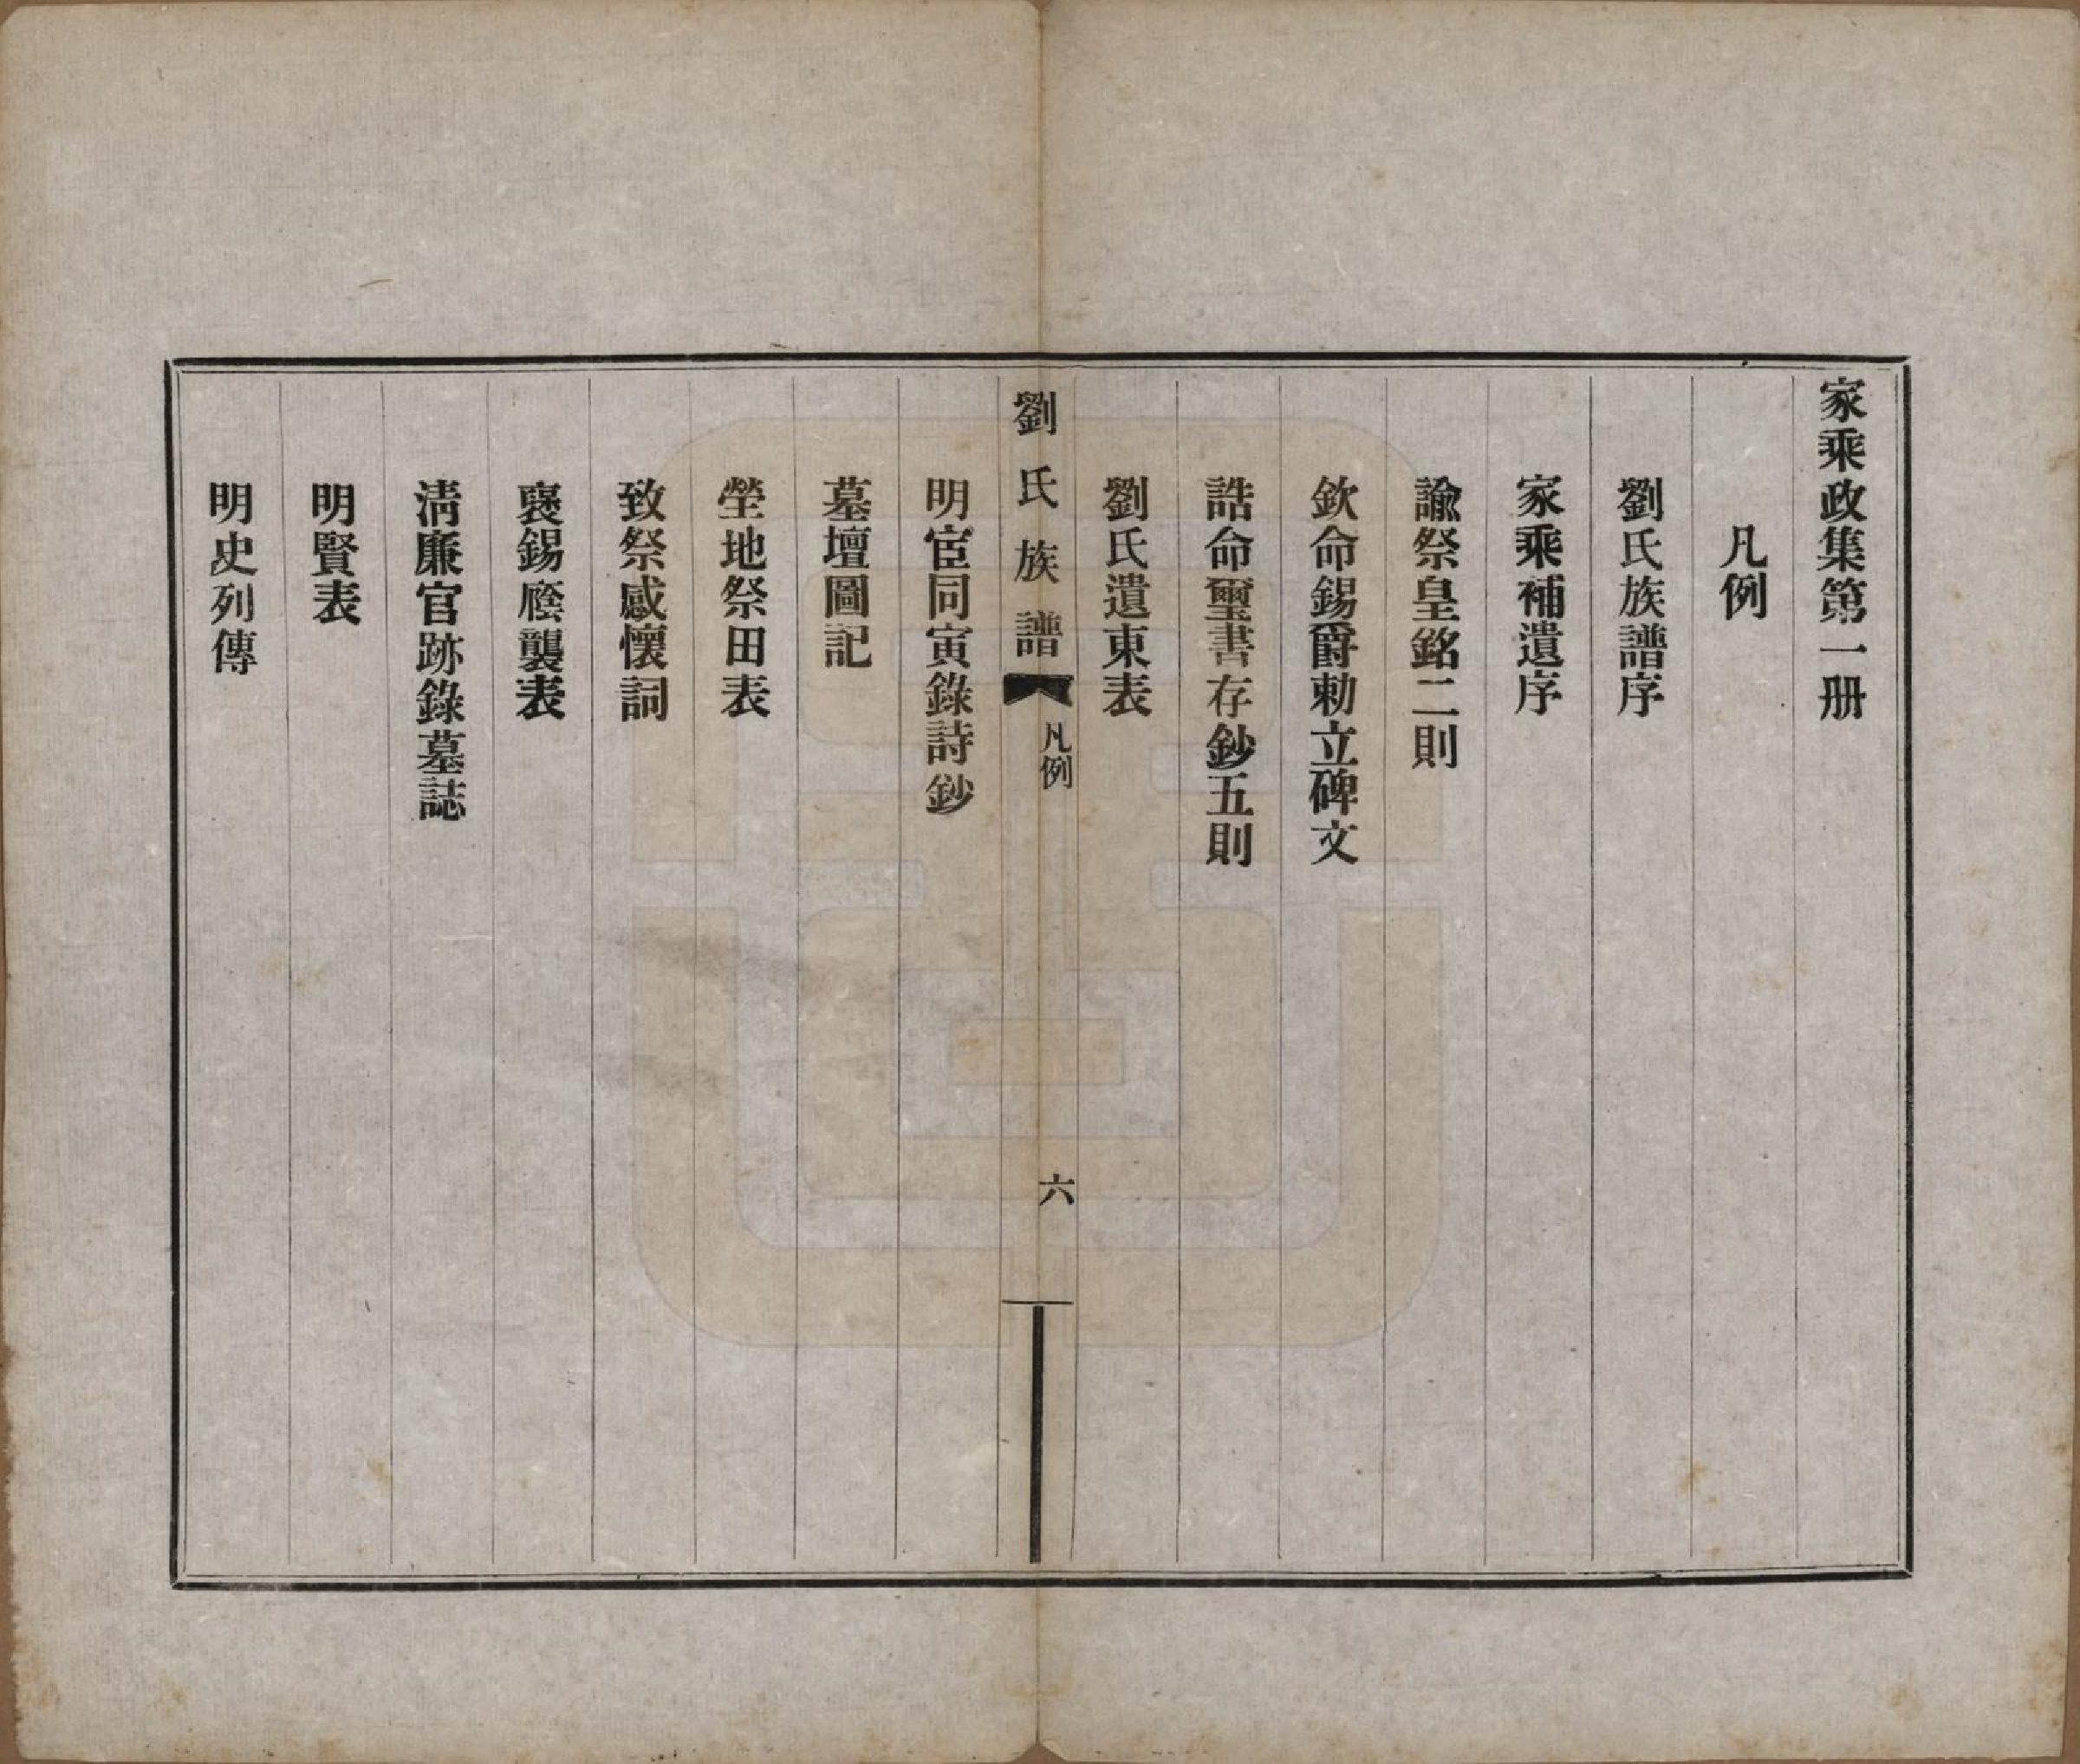 家乘政集第一册
凡例
劉氏族譜序
家乘補遺序
諭祭皇銘二則
欽命錫爵勅立碑文
誥命璽書存鈔五則
劉氏遺東表
劉氏族譜
凡例
六
明宦同寅錄詩鈔
墓壇圖記
塋地祭田表
致祭感懷詞
褒錫廕襲表
淸廉官跡錄墓誌
明賢表
明史列傳